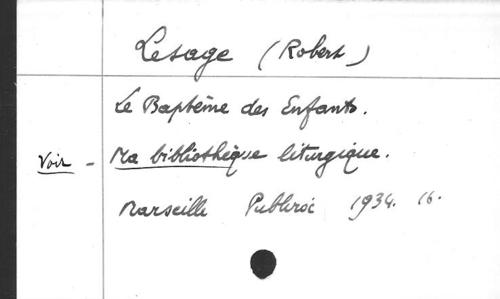 Lesage (Robert)
Le Baptême des Enfants.
Voir - Ma bibliothèque liturgique.
Marseille Publiroc 1934. 16.